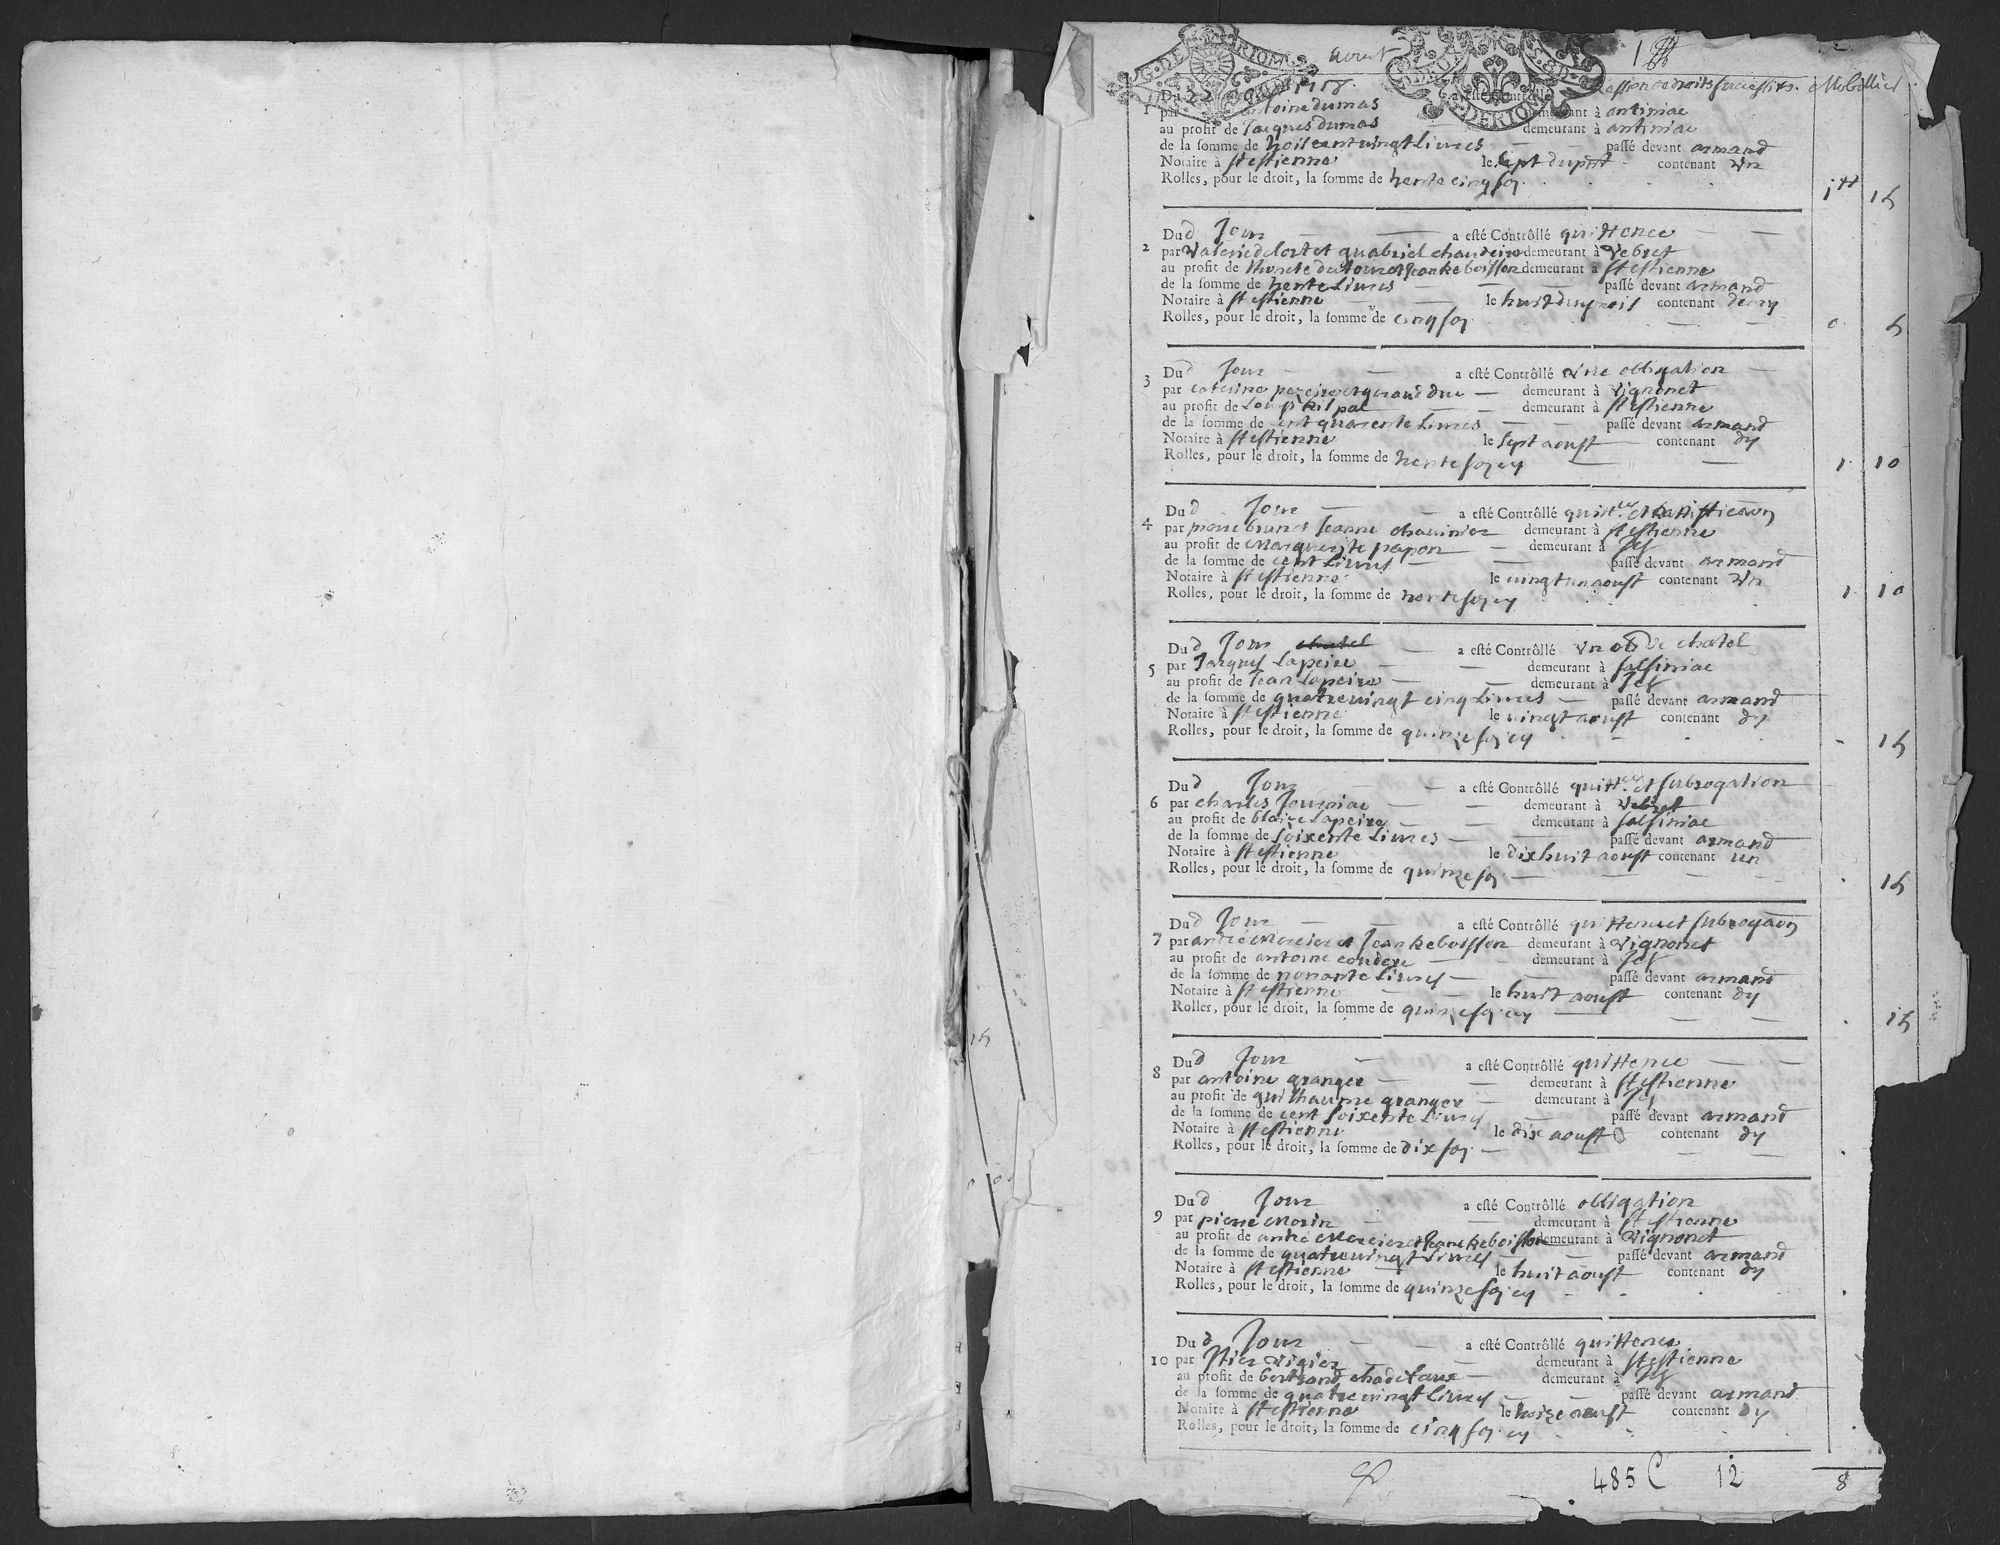 aoust
G. DE RIOM
G. DE RIOM
Du 22 1718. a esté Contrôllé Cession de droits successifs. Mobillier
1 par antoine dumas demeurant à antiniac
au profit de Jacques dumas demeurant à antiniac
de la somme de hoit cent vingt Livres passé devant armand
Notaire à St estienne le sept du pnt contenant Vn
Rolles, pour le droit, la somme de trente cinq sos.
1tt 15
Du d Jour a esté Contrôllé quittence
2 par Valerie delort et guabriel chauveiro demeurant à Vebret
au profit de demeurant à St estienne
de la somme de trente Livres passé devant armand
Notaire à St estienne le huit du mois contenant demy
Rolles, pour le droit, la somme de cinq sos
0 5
Du d Jour a esté Contrôllé Vne obligation
3 par demeurant à Vignonet
au profit de demeurant à St estienne
de la somme de Cent quarente Livres passé devant armand
Notaire à St estienne le sept aoust contenant dy
Rolles, pour le droit, la somme de trente sos cy
1 10
Du d Jour a esté Contrôllé quittce et
4 par pierre brun et Jeanne chauvinier demeurant à St estienne
au profit de Marguerite papon demeurant à Jcy
de la somme de cent Livres passé devant armand
Notaire à St estienne le vingt un aoust contenant Vn
Rolles, pour le droit, la somme de trente sos cy
1 10
Du d Jour chatel a esté Contrôllé Vn chatel
5 par Jacques Lapeire demeurant à salsiniac
au profit de Jean Lapeire demeurant à Jcy
de la somme de quatre vingt cinq Livres passé devant armand
Notaire à St estienne le vingt aoust contenant dy
Rolles, pour le droit, la somme de quinze sos cy
15
Du d Jour a esté Contrôllé quittce et subrogation
6 par charles Journiac demeurant à Vebret
au profit de blaize Lapeire demeurant à salsiniac
de la somme de soixente Livres passé devant armand
Notaire à St estienne le dix huit aoust contenant un
Rolles, pour le droit, la somme de quinze sos
15
Du d Jour a esté Contrôllé quittence et subrogaon
7 par andré Mercier et Jean Reboisson demeurant à Vignonet
au profit de antoine couderc demeurant à Jcy
de la somme de nonante Livres passé devant armand
Notaire à St estienne le huit aoust contenant dy
Rolles, pour le droit, la somme de quinze sos cy
15
Du d Jour a esté Contrôllé quittence
8 par antoine granger demeurant à St estienne
au profit de guilhaume granger demeurant à Jcy
de la somme de cent soixente Livres passé devant armand
Notaire à St estienne le dix aoust contenant dy
Rolles, pour le droit, la somme de dix sos
Du d Jour a esté Contrôllé obligation
9 par pierre Morin demeurant à St estienne
au profit de andré Mercier et Jean Reboisson demeurant à Vignonet
de la somme de quatre vingt Livres passé devant armand
Notaire à St estienne le huit aoust contenant dy
Rolles, pour le droit, la somme de quinze sos cy
Du d Jour a esté Contrôllé quittence
10 par Vigier demeurant à St estienne
au profit de bertrand demeurant à Jcy
de la somme de quatre vingt Livres passé devant armand
Notaire à St estienne le treize aoust contenant dy
Rolles, pour le droit, la somme de cinq sos cy
485 C 12 8